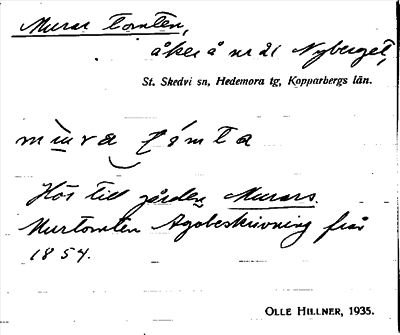 Murar tomten,
åker å nr 21 Nyberget,
St. Skedvi sn, Hedemora tg, Kopparbergs län.
Hör till gården Murars.
Murtomten Ägobeskrivning från
1854.
OLLE HILLNER, 1935.